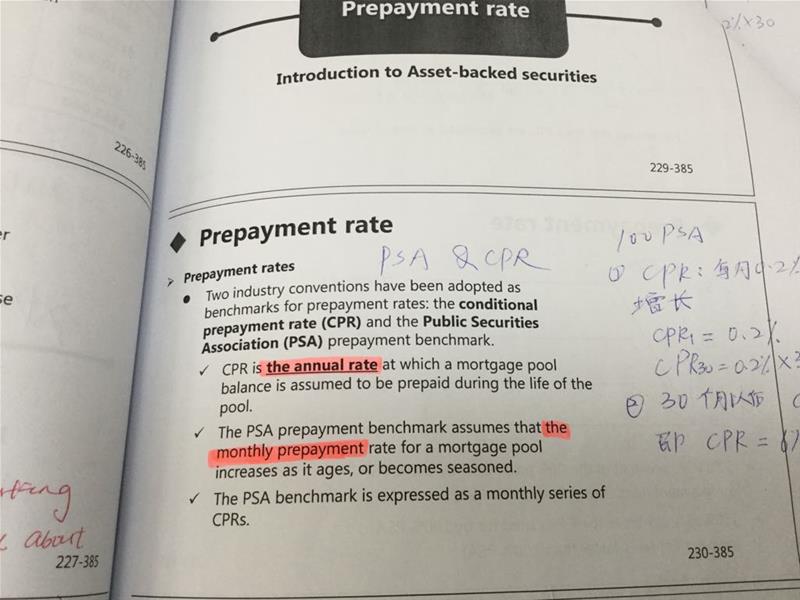 Prepayment rate
2%×30
Introduction to Asset-backed securities
226-385
229-385
◆ Prepayment rate
PSA & CPR
➢ Prepayment rates
• Two industry conventions have been adopted as
benchmarks for prepayment rates: the conditional
prepayment rate (CPR) and the Public Securities
Association (PSA) prepayment benchmark.
✓ CPR is the annual rate at which a mortgage pool
balance is assumed to be prepaid during the life of the
pool.
✓ The PSA prepayment benchmark assumes that the
monthly prepayment rate for a mortgage pool
increases as it ages, or becomes seasoned.
✓ The PSA benchmark is expressed as a monthly series of
CPRs.
100 PSA
① CPR: 每月0.2%
增长
CPR1 = 0.2%
CPR30 = 0.2% ×
② 30个月以后
即 CPR = 6%
about
227-385
230-385